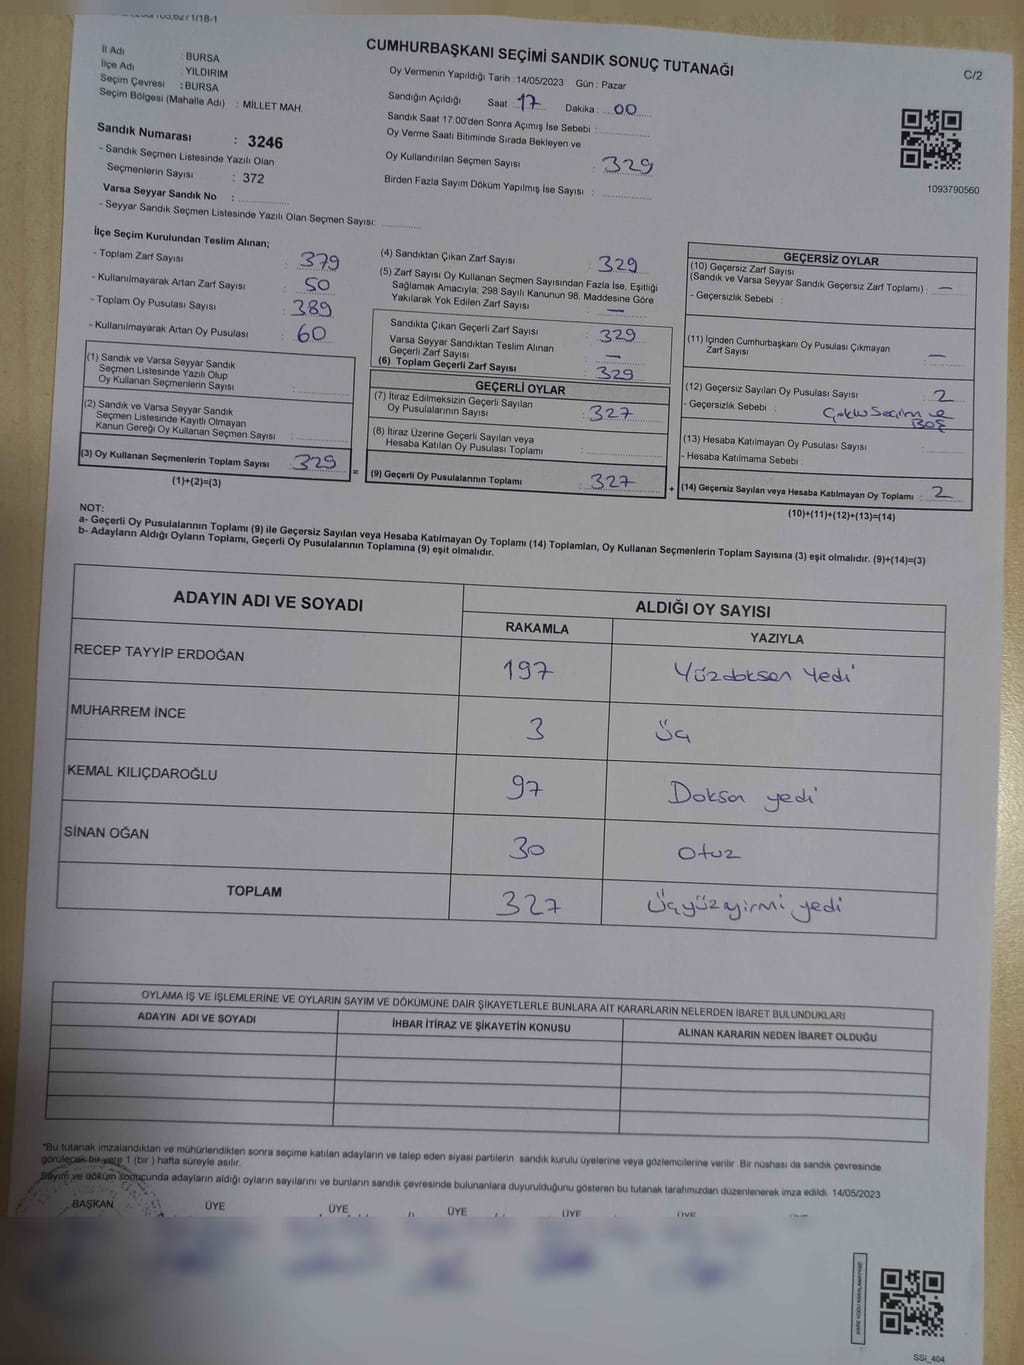 CUMHURBAŞKANI SEÇİMİ SANDIK SONUÇ TUTANAĞI
C/2
İl Adı : BURSA
İlçe Adı : YILDIRIM
Seçim Çevresi : BURSA
Seçim Bölgesi (Mahalle Adı) : MİLLET MAH.
Sandık Numarası : 3246
- Sandık Seçmen Listesinde Yazılı Olan
Seçmenlerin Sayısı : 372
Varsa Seyyar Sandık No :
- Seyyar Sandık Seçmen Listesinde Yazılı Olan Seçmen Sayısı:
Oy Vermenin Yapıldığı Tarih : 14/05/2023 Gün : Pazar
Sandığın Açıldığı Saat : 17 Dakika : 00
Sandık Saat 17.00'den Sonra Açımış İse Sebebi :
Oy Verme Saati Bitiminde Sırada Bekleyen ve
Oy Kullandırılan Seçmen Sayısı : 329
Birden Fazla Sayım Döküm Yapılmış İse Sayısı :
1093790560
İlçe Seçim Kurulundan Teslim Alınan;
- Toplam Zarf Sayısı : 379
- Kullanılmayarak Artan Zarf Sayısı : 50
- Toplam Oy Pusulası Sayısı : 389
- Kullanılmayarak Artan Oy Pusulası : 60
(1) Sandık ve Varsa Seyyar Sandık
Seçmen Listesinde Yazılı Olup
Oy Kullanan Seçmenlerin Sayısı :
(2) Sandık ve Varsa Seyyar Sandık
Seçmen Listesinde Kayıtlı Olmayan
Kanun Gereği Oy Kullanan Seçmen Sayısı :
(3) Oy Kullanan Seçmenlerin Toplam Sayısı : 329
(1)+(2)=(3)
(4) Sandıktan Çıkan Zarf Sayısı : 329
(5) Zarf Sayısı Oy Kullanan Seçmen Sayısından Fazla İse, Eşitliği
Sağlamak Amacıyla; 298 Sayılı Kanunun 98. Maddesine Göre
Yakılarak Yok Edilen Zarf Sayısı : —
Sandıkta Çıkan Geçerli Zarf Sayısı : 329
Varsa Seyyar Sandıktan Teslim Alınan
Geçerli Zarf Sayısı : —
(6) Toplam Geçerli Zarf Sayısı : 329
GEÇERLİ OYLAR
(7) İtiraz Edilmeksizin Geçerli Sayılan
Oy Pusulalarının Sayısı : 327
(8) İtiraz Üzerine Geçerli Sayılan veya
Hesaba Katılan Oy Pusulası Toplamı :
= (9) Geçerli Oy Pusulalarının Toplamı : 327
GEÇERSİZ OYLAR
(10) Geçersiz Zarf Sayısı
(Sandık ve Varsa Seyyar Sandık Geçersiz Zarf Toplamı) : —
- Geçersizlik Sebebi :
(11) İçinden Cumhurbaşkanı Oy Pusulası Çıkmayan
Zarf Sayısı : —
(12) Geçersiz Sayılan Oy Pusulası Sayısı : 2
- Geçersizlik Sebebi : Çoklu Seçim ve
BOŞ
(13) Hesaba Katılmayan Oy Pusulası Sayısı :
- Hesaba Katılmama Sebebi :
+ (14) Geçersiz Sayılan veya Hesaba Katılmayan Oy Toplamı : 2
(10)+(11)+(12)+(13)=(14)
NOT:
a- Geçerli Oy Pusulalarının Toplamı (9) ile Geçersiz Sayılan veya Hesaba Katılmayan Oy Toplamı (14) Toplamları, Oy Kullanan Seçmenlerin Toplam Sayısına (3) eşit olmalıdır. (9)+(14)=(3)
b- Adayların Aldığı Oyların Toplamı, Geçerli Oy Pusulalarının Toplamına (9) eşit olmalıdır.
ADAYIN ADI VE SOYADI
ALDIĞI OY SAYISI
RAKAMLA YAZIYLA
RECEP TAYYİP ERDOĞAN 197 Yüzdoksan Yedi
MUHARREM İNCE 3 Üç
KEMAL KILIÇDAROĞLU 97 Doksan yedi
SİNAN OĞAN 30 Otuz
TOPLAM 327 Üçyüzyirmi yedi
OYLAMA İŞ VE İŞLEMLERİNE VE OYLARIN SAYIM VE DÖKÜMÜNE DAİR ŞİKAYETLERLE BUNLARA AİT KARARLARIN NELERDEN İBARET BULUNDUKLARI
ADAYIN ADI VE SOYADI İHBAR İTİRAZ VE ŞİKAYETİN KONUSU ALINAN KARARIN NEDEN İBARET OLDUĞU
"Bu tutanak imzalandıktan ve mühürlendikten sonra seçime katılan adayların ve talep eden siyasi partilerin sandık kurulu üyelerine veya gözlemcilerine verilir. Bir nüshası da sandık çevresinde
görülecek bir yere 1 (bir ) hafta süreyle asılır.
Sayım ve döküm sonucunda adayların aldığı oyların sayılarını ve bunların sandık çevresinde bulunanlara duyurulduğunu gösteren bu tutanak tarafımızdan düzenlenerek imza edildi. 14/05/2023
BAŞKAN ÜYE ÜYE ÜYE ÜYE ÜYE
SSI_404